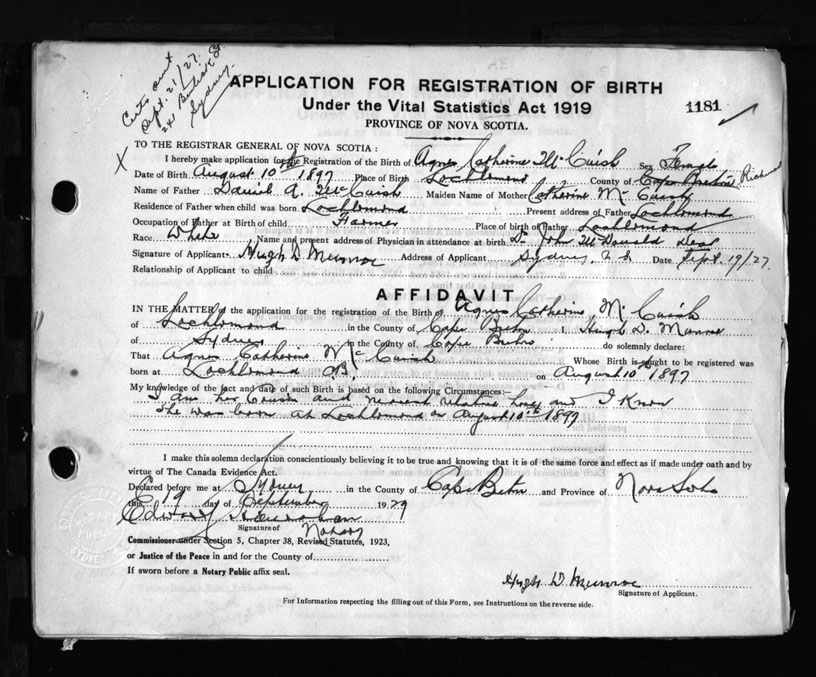 Certs sent
Sept. 21/27.
241 Bentinck St
Sydney.
APPLICATION FOR REGISTRATION OF BIRTH
Under the Vital Statistics Act 1919
1181
PROVINCE OF NOVA SCOTIA.
TO THE REGISTRAR GENERAL OF NOVA SCOTIA:
X
I hereby make application for the Registration of the Birth of Agnes Catherine McCuish Sex Female
Date of Birth August 10th 1897 Place of Birth Lochlomond County of Cape Breton Richmond
Name of Father Daniel A. McCuish Maiden Name of Mother Catherine McCuish
Residence of Father when child was born Lochlomond Present address of Father Lochlomond
Occupation of Father at Birth of child Farmer Place of birth of Father Lochlomond
Race White Name and present address of Physician in attendance at birth Dr John McDonald Dead
Signature of Applicant Hugh D. Munroe Address of Applicant Sydney, N S Date Sept. 19/27
Relationship of Applicant to child
AFFIDAVIT
IN THE MATTER of the application for the registration of the Birth of Agnes Catherine McCuish
of Lochlomond in the County of Cape Breton I, Hugh D. Munroe
of Sydney in the County of Cape Breton do solemnly declare:
That Agnes Catherine McCuish Whose Birth is sought to be registered was
born at Lochlomond C.B. on August 10th 1897
My knowledge of the fact and date of such Birth is based on the following Circumstances:
I am her Cousin and nearest relative here and I Know
She was born at Lochlomond on August 10th 1897
I make this solemn declaration conscientiously believing it to be true and knowing that it is of the same force and effect as if made under oath and by
virtue of The Canada Evidence Act.
Declared before me at Sydney in the County of Cape Breton and Province of Nova Scotia
this 19 day of September 1927
Edward
Signature of Notary
Commissioner under Section 5, Chapter 38, Revised Statutes, 1923,
or Justice of the Peace in and for the County of
If sworn before a Notary Public affix seal.
Hugh D. Munroe
Signature of Applicant.
For Information respecting the filling out of this Form, see Instructions on the reverse side.